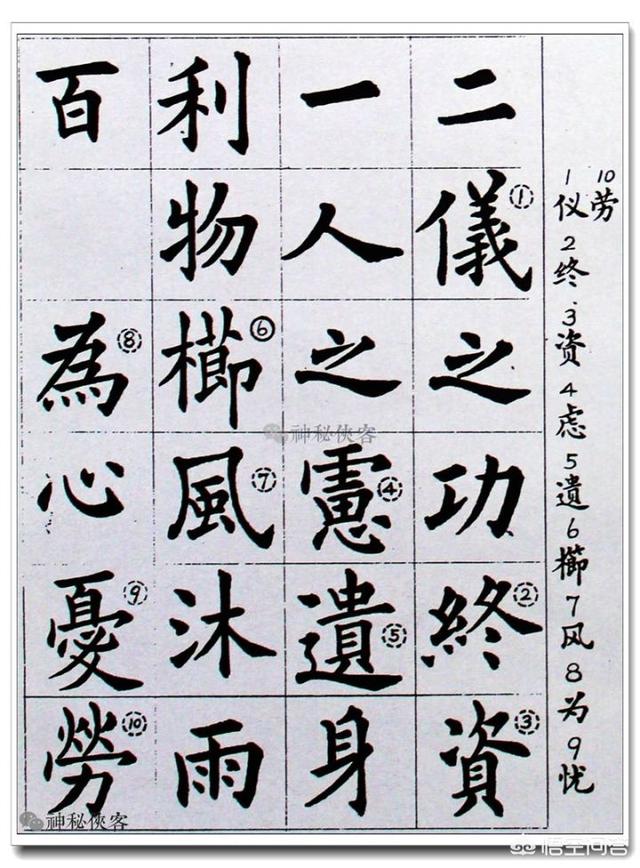 二儀之功終資
一人之慮遺身
利物櫛風沐雨
百 為心憂勞
① ② ③ ④ ⑤ ⑥ ⑦ ⑧ ⑨ ⑩
1仪2终3资4虑5遺6櫛7风8为9忧
10劳
神秘侠客
神秘侠客
悟空问答